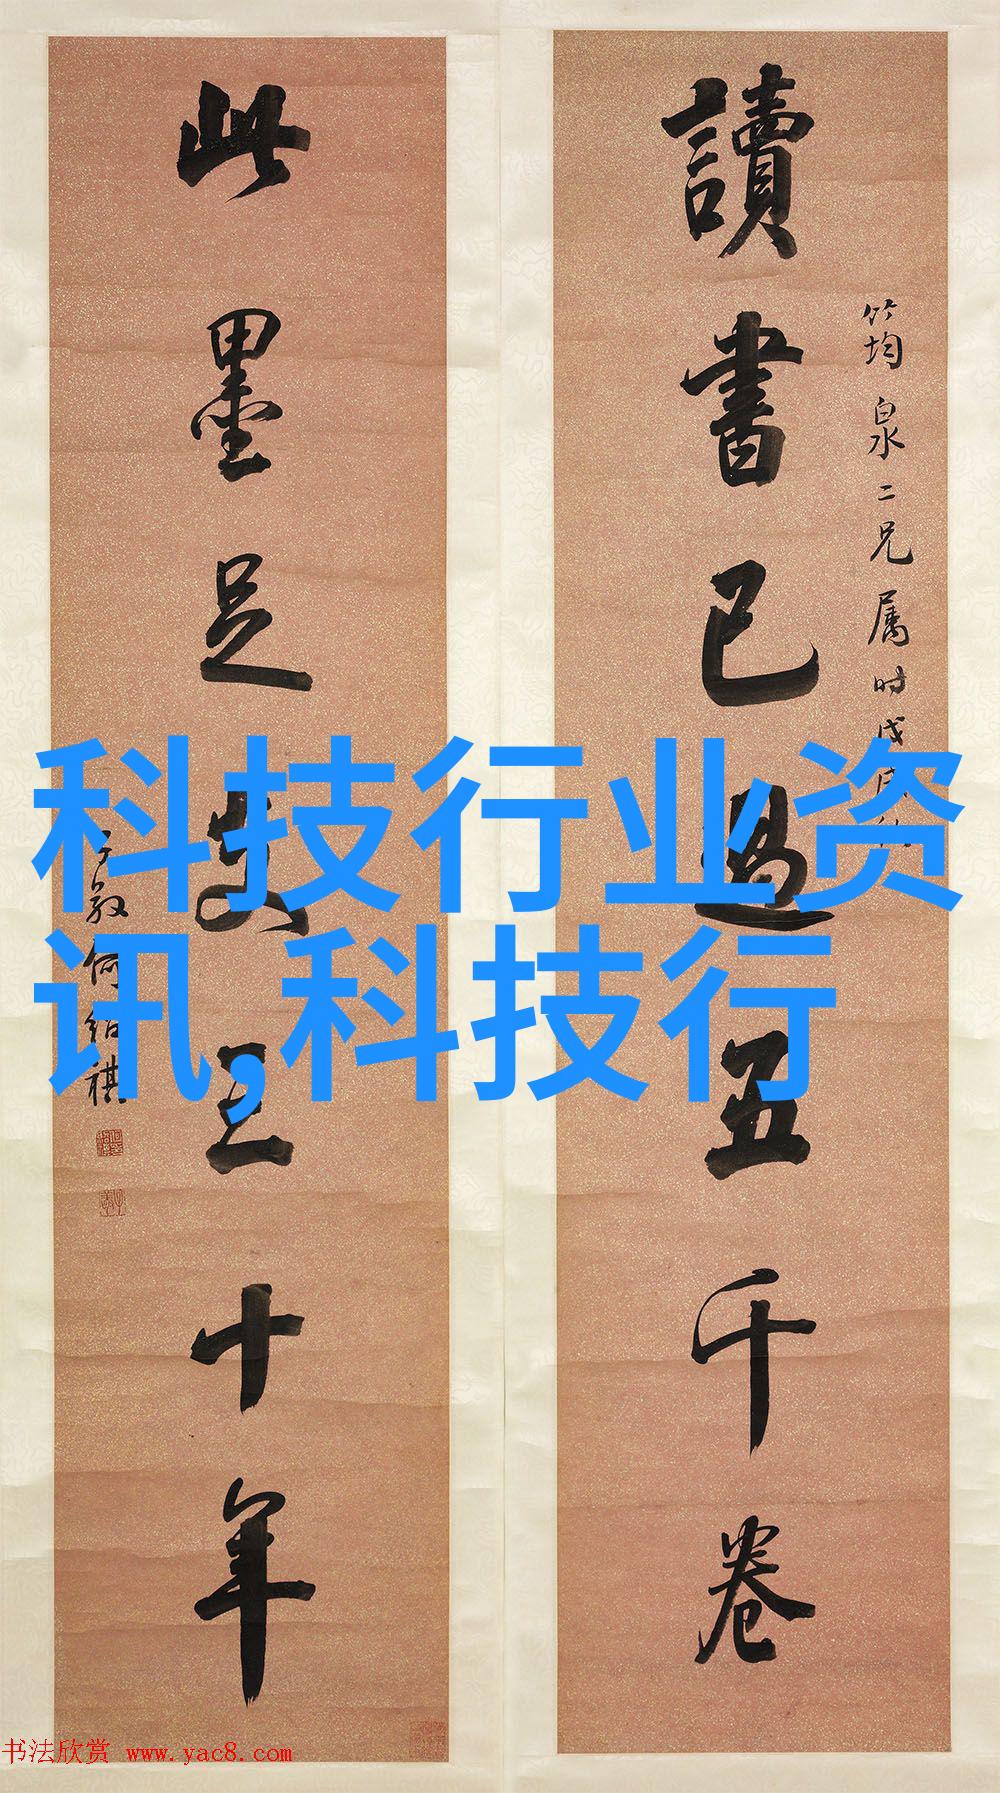 讀書已過五千卷
筠泉二兄属時戊
此墨足支三十年
子敬何绍祺
科技行业资
讯,科技行
书法欣赏 www.yac8.com